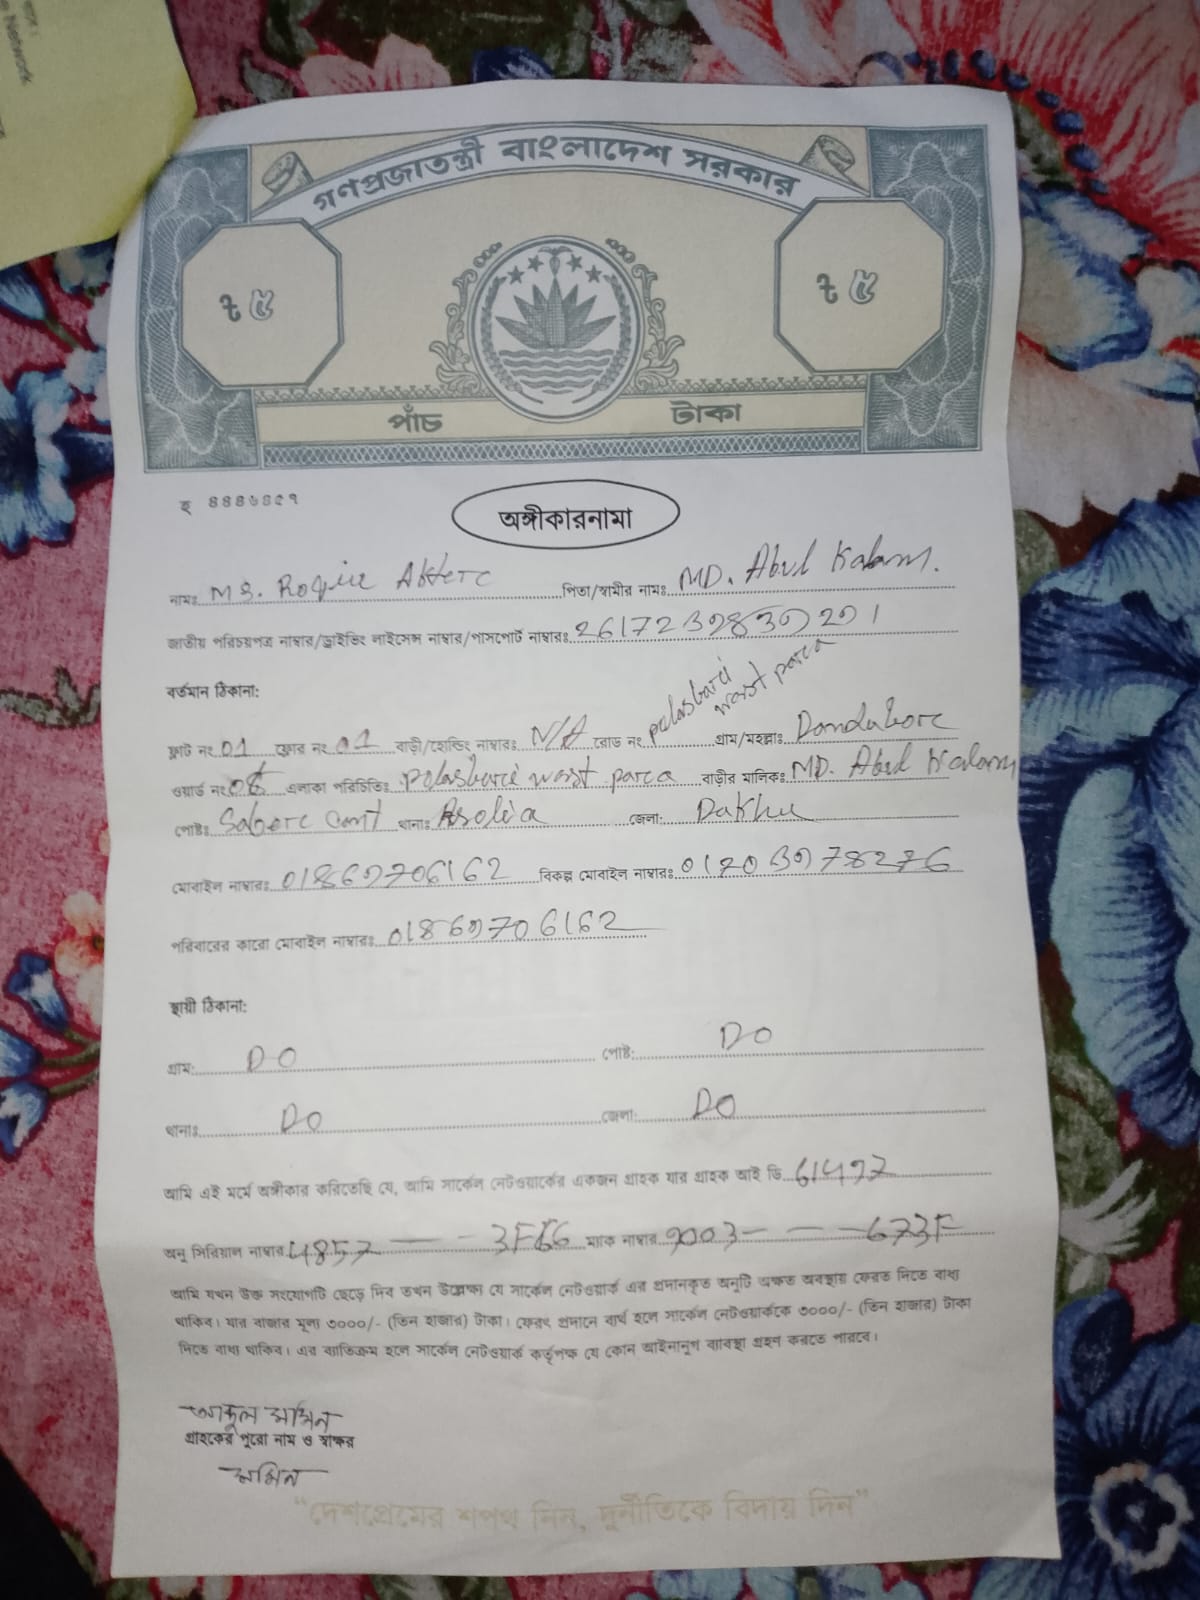 Network
গণপ্রজাতন্ত্রী বাংলাদেশ সরকার
৳ ৫ ৳ ৫
পাঁচ টাকা
অঙ্গীকারনামা
নামঃ MS. Akterc পিতা/স্বামীর নামঃ MD. Abul Kalam.
জাতীয় পরিচয়পত্র নাম্বার/ড্রাইভিং লাইসেন্স নাম্বার/পাসপোর্ট নাম্বারঃ
বর্তমান ঠিকানা:
ফ্লাট নং 01 ফ্লোর নং 01 বাড়ী/হোল্ডিং নাম্বারঃ N/A রোড নং polasbari west parca গ্রাম/মহল্লাঃ Dandaborc
ওয়ার্ড নং এলাকা পরিচিতিঃ polasbari west parca বাড়ীর মালিকঃ MD. Abul Kalam
পোষ্টঃ Saborc Cant থানাঃ Asolia জেলা: Dakha
মোবাইল নাম্বারঃ 01869706162 বিকল্প মোবাইল নাম্বারঃ
পরিবারের কারো মোবাইল নাম্বারঃ 01869706162
স্থায়ী ঠিকানা:
গ্রাম: DO পোষ্ট: DO
থানাঃ DO জেলা: DO
আমি এই মর্মে অঙ্গীকার করিতেছি যে, আমি সার্কেল নেটওয়ার্কের একজন গ্রাহক যার গ্রাহক আই ডি
অনু সিরিয়াল নাম্বার 4857 — - 3F66 ম্যাক নাম্বার 9003 — - — 673F
আমি যখন উক্ত সংযোগটি ছেড়ে দিব তখন উল্লেক্ষ্য যে সার্কেল নেটওয়ার্ক এর প্রদানকৃত অনুটি অক্ষত অবস্থায় ফেরত দিতে বাধ্য
থাকিব। যার বাজার মূল্য ৩০০০/- (তিন হাজার) টাকা। ফেরৎ প্রদানে ব্যর্থ হলে সার্কেল নেটওয়ার্ককে ৩০০০/- (তিন হাজার) টাকা
দিতে বাধ্য থাকিব। এর ব্যতিক্রম হলে সার্কেল নেটওয়ার্ক কর্তৃপক্ষ যে কোন আইনানুগ ব্যবস্থা গ্রহণ করতে পারবে।
মমিন
গ্রাহকের পুরো নাম ও স্বাক্ষর
মমিন
“দেশপ্রেমের শপথ নিন, দুর্নীতিকে বিদায় দিন”